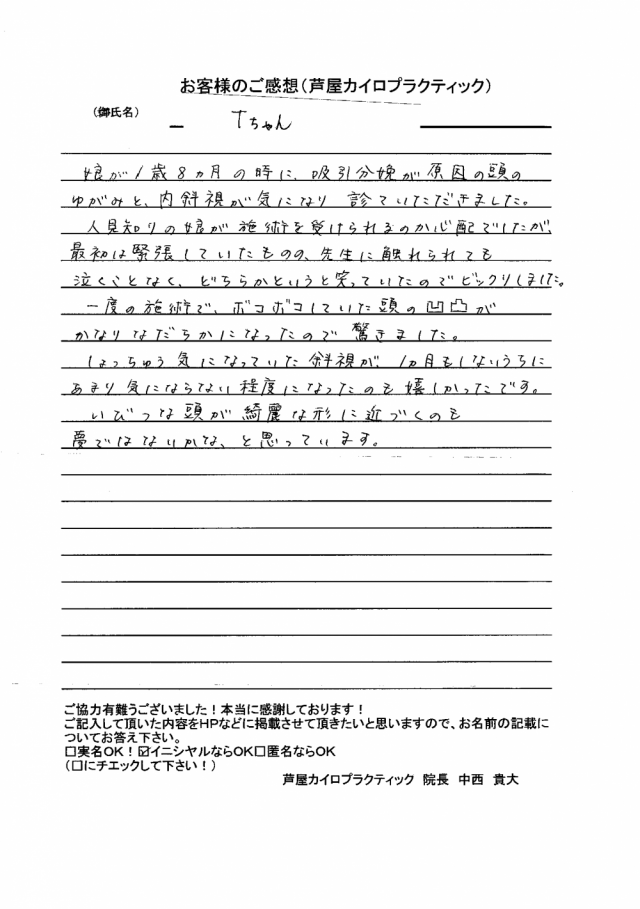 お客様のご感想(芦屋カイロプラクティック)
(御氏名)
Tちゃん
娘が1歳8ヵ月の時に、吸引分娩が原因の頭の
ゆがみと、内斜視が気になり 診ていただきました。
人見知りの娘が施術を受けられるのか心配でしたが、
最初は緊張していたものの、先生に触れられても
泣くことなく、どちらかというと笑っていたのでビックリしました。
一度の施術で、ボコボコしていた頭の凹凸が
かなりなだらかになったので 驚きました。
しょっちゅう気になっていた斜視が、1ヵ月もしないうちに
あまり気にならない程度になったのも嬉しかったです。
いびつな頭が綺麗な形に近づくのも
夢ではないかな、と思っています。
ご協力有難うございました!本当に感謝しております!
ご記入して頂いた内容をHPなどに掲載させて頂きたいと思いますので、お名前の記載に
ついてお答え下さい。
□実名OK!☑イニシャルならOK□匿名ならOK
(□にチェックして下さい!)
芦屋カイロプラクティック 院長 中西 貴大